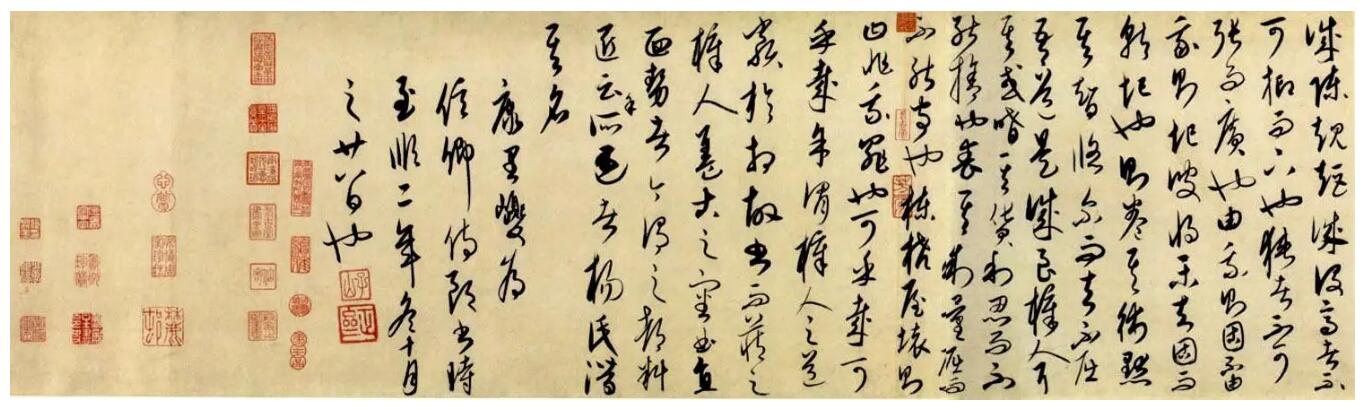 誠陳規矩誠設高者不
可抑而下也狹者不可
張而廣也由我則固不由
我則圮彼將樂去固而
就圮也則卷其術默
其智悠尔而去不屈
吾道是誠良梓人耳
其或嗜其貨利忍而不
能捨也喪其制量屈而
不能守也棟橈屋壞則
曰非我罪也可乎哉可
乎哉余謂梓人之道
類於相故書而藏之
梓人蓋古之審曲直
面勢者今謂之都料
匠云余所遇者楊氏潛
其名
康里巎為
任卿侍郎書時
至順二年冬十月
之廿八日也
子山